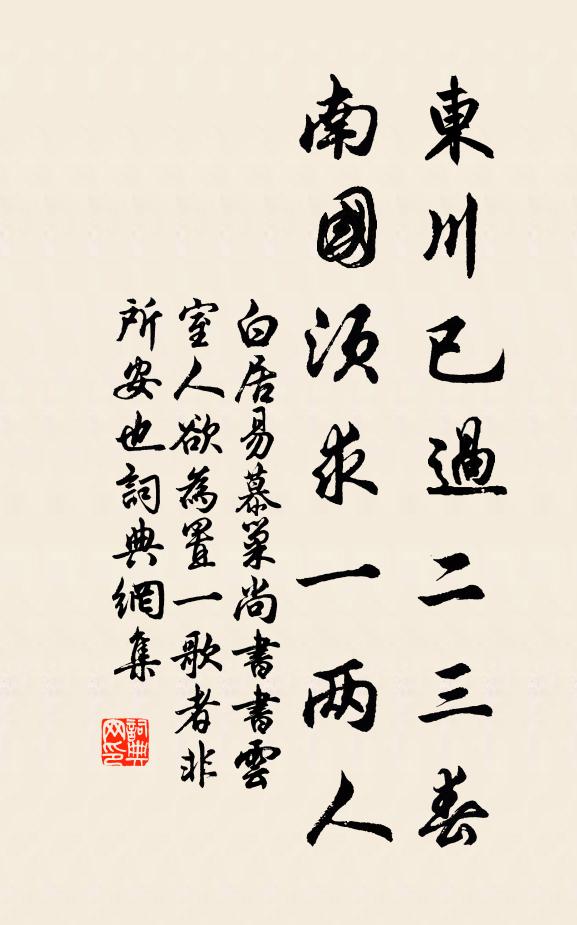 東川已過二三春
南國須求一兩人
白居易慕巢尚書書雲
室人欲為置一歌者非
所安也詞典網集
詞典网印